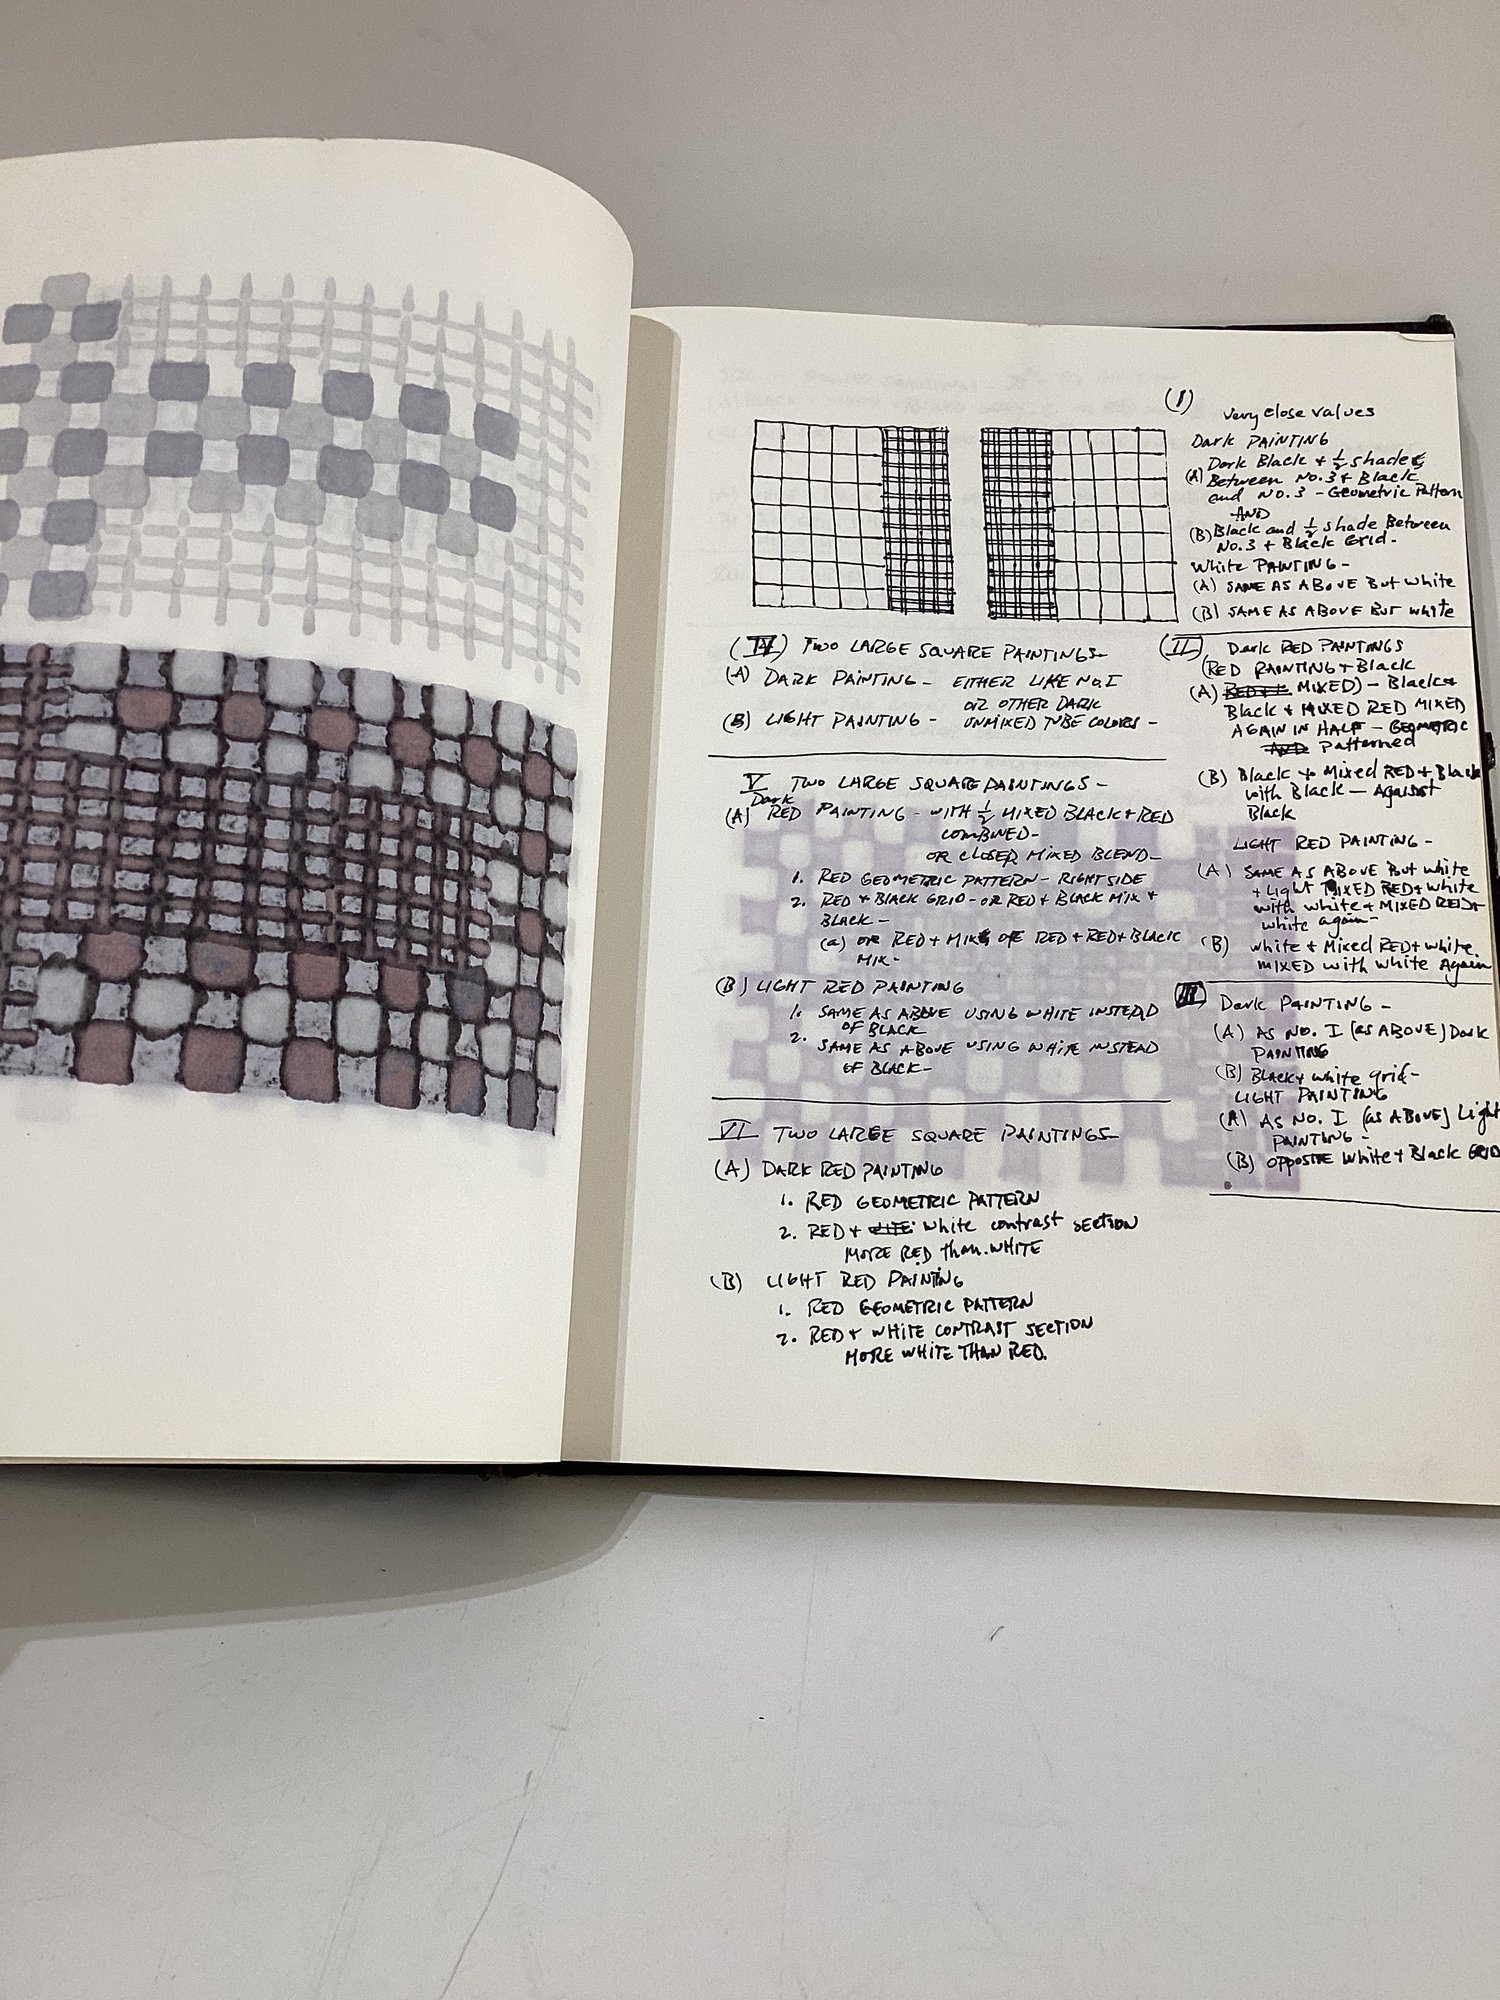 (I)
very close values
Dark PAINTING
(A) Dark Black + ½ shades
Between No.3 + Black
and No.3 - Geometric Pattern
AND
(B) Black and ½ shade Between
No.3 + Black Grid.
White PAINTING -
(A) SAME AS ABOVE But white
(B) SAME AS ABOVE BUT white
(II) Dark RED PAINTINGS
(RED PAINTING + Black
(A) MIXED) - Black +
Black + MIXED RED MIXED
AGAIN IN HALF - GEOMETRIC
Patterned
(B) Black + Mixed RED + Black
with Black — Against
Black
LIGHT RED PAINTING -
(A) SAME AS ABOVE But white
+ Light MIXED RED + white
with white + MIXED RED +
white again -
(B) white + Mixed RED + white
MIXED with white Again
III Dark PAINTING -
(A) AS NO. I (as ABOVE) Dark
PAINTING
(B) Black + white grid -
LIGHT PAINTING
(A) AS NO. I (as ABOVE) Light
PAINTING -
(B) OPPOSITE White + Black GRID
(IV) TWO LARGE SQUARE PAINTINGS -
(A) DARK PAINTING - EITHER LIKE NO. I
OR OTHER DARK
(B) LIGHT PAINTING - UNMIXED TUBE COLORS -
V TWO LARGE SQUARE PAINTINGS -
Dark
(A) RED PAINTING - WITH ½ MIXED BLACK + RED
COMBINED -
OR CLOSER MIXED BLEND -
1. RED GEOMETRIC PATTERN - RIGHT SIDE
2. RED + BLACK GRID - OR RED + BLACK MIX +
BLACK -
(a) OR RED + MIX OF RED + RED + BLACK
MIX -
(B) LIGHT RED PAINTING
1. SAME AS ABOVE USING WHITE INSTEAD
OF BLACK
2. SAME AS ABOVE USING WHITE INSTEAD
OF BLACK -
VI TWO LARGE SQUARE PAINTINGS -
(A) DARK RED PAINTING
1. RED GEOMETRIC PATTERN
2. RED + white contrast SECTION
MORE RED than WHITE
(B) LIGHT RED PAINTING
1. RED GEOMETRIC PATTERN
2. RED + WHITE CONTRAST SECTION
MORE WHITE THAN RED.